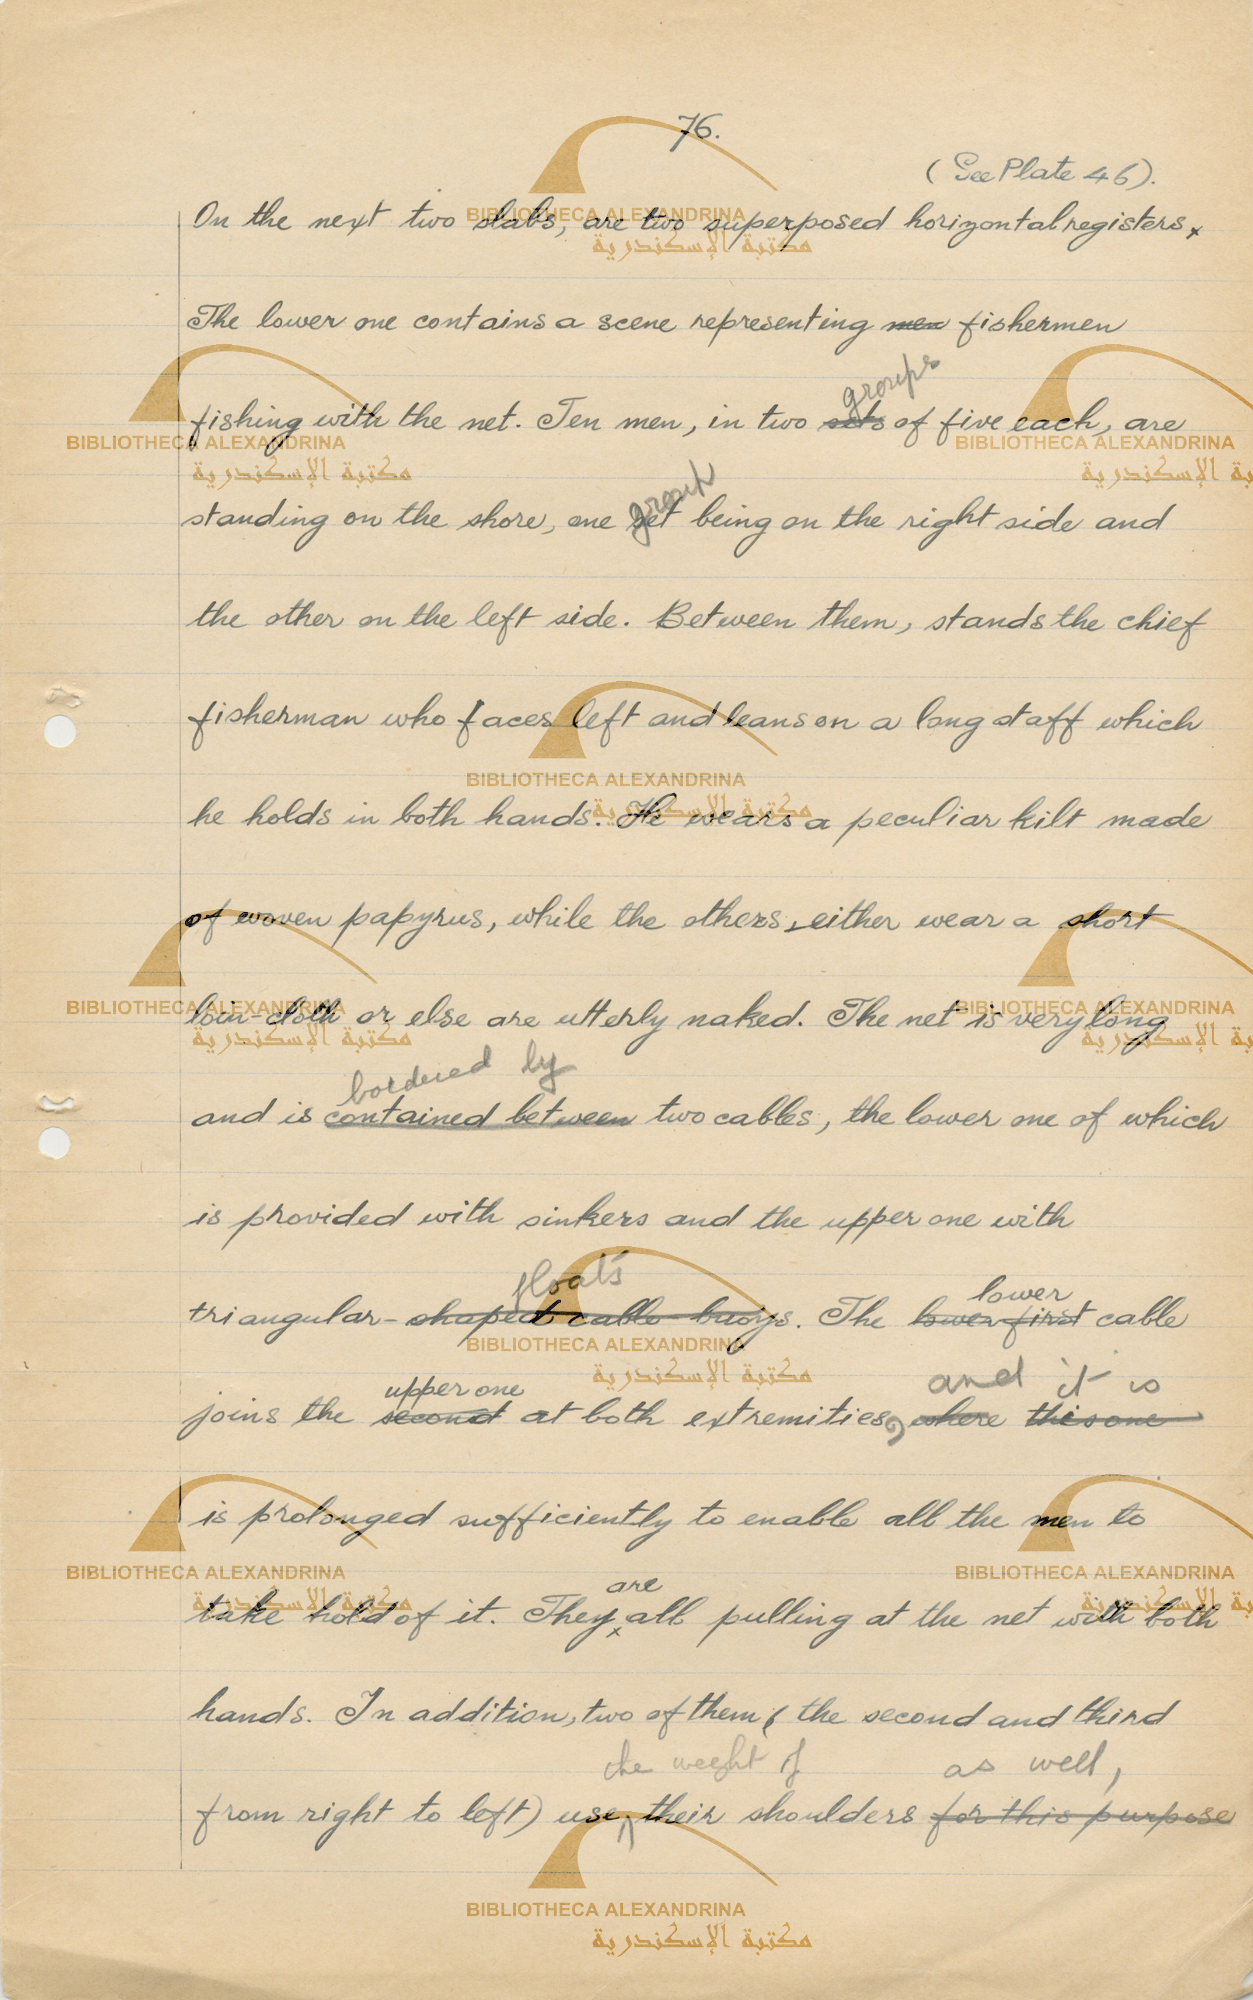 76.
(See Plate 46).
On the next two slabs, are two superposed horizontal registers.
The lower one contains a scene representing men fishermen
groups
fishing with the net. Ten men, in two sets of five each, are
group
standing on the shore, one set being on the right side and
the other on the left side. Between them, stands the chief
fisherman who faces left and leans on a long staff which
he holds in both hands. He wears a peculiar kilt made
of woven papyrus, while the others, either wear a short
loin-cloth or else are utterly naked. The net is very long
bordered by
and is contained between two cables, the lower one of which
is provided with sinkers and the upper one with
floats lower
triangular-shaped cable buoys. The lower first cable
upper one and it is
joins the second at both extremities, where this one
is prolonged sufficiently to enable all the men to
are
take hold of it. They all pulling at the net with both
hands. In addition, two of them ( the second and third
the weight of as well,
from right to left) use their shoulders for this purpose
BIBLIOTHECA ALEXANDRINA
مكتبة الإسكندرية